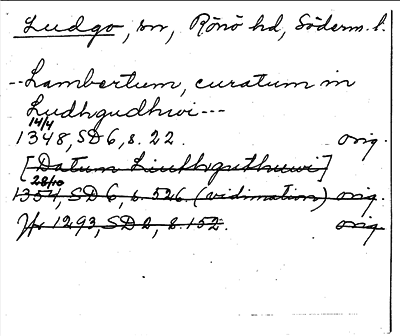 Ludgo, sn, Rönö hd, Söderm. l.
--Lambertum, curatum in
Ludhgudhwi---
14/4
1348, SD 6, s. 22. orig.
[Datum Liuthguthuwi]
28/10
1354, SD 6, s. 526. (vidimation) orig.
Jfr 1293, SD 2, s. 152. orig.